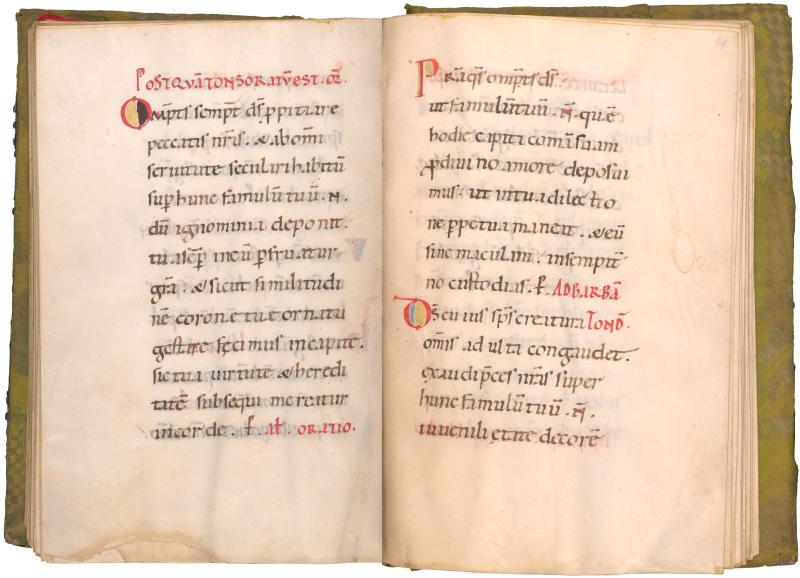 POSTQVĀ TONSORATVS EST. OR̄
Omp̄ts semp̄t ds̄ ꝓpitiare
peccatis nr̄is. & abom̄i
seruitute seculari habitū
suꝑ hunc famulū tuū .N̄.
dū ignominia deponit.
tua sēp̄ in eū ꝑfruatur
gr̄a. & sicut similitudi
nē coronę tuę ornatu
gestare fecimus in capite.
sic tua uirtute & heredi
tatē subsequi mereatur
in corde. ꝑ. aƚ. oratio.
Pr̄a qs̄ omp̄ts ds̄.
ut famulū tuū .N̄. quē
hodie capiti comā suam
ꝓ diuino amore deposui
mus. ut in tua dilectio
ne ppetua maneat. & eū
sine macula in sempit̄
no custodias. ꝑ. AD BARBĀ
Ds̄ cuius sps̄ creatura TOND̄.
omīs adulta congaudet.
exaudi p̄ces nr̄as super
hunc famulū tuū .N̄.
iuuenili ętate decorē
94